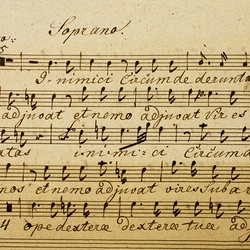 Soprano.
I-nimici Circum de derunt
adjuvat et nemo adjuvat vires
i-ni-mi-ci Circum
nos et nemo adjuvat vires sub a
4 ope dexteræ dexteræ tuæ ad